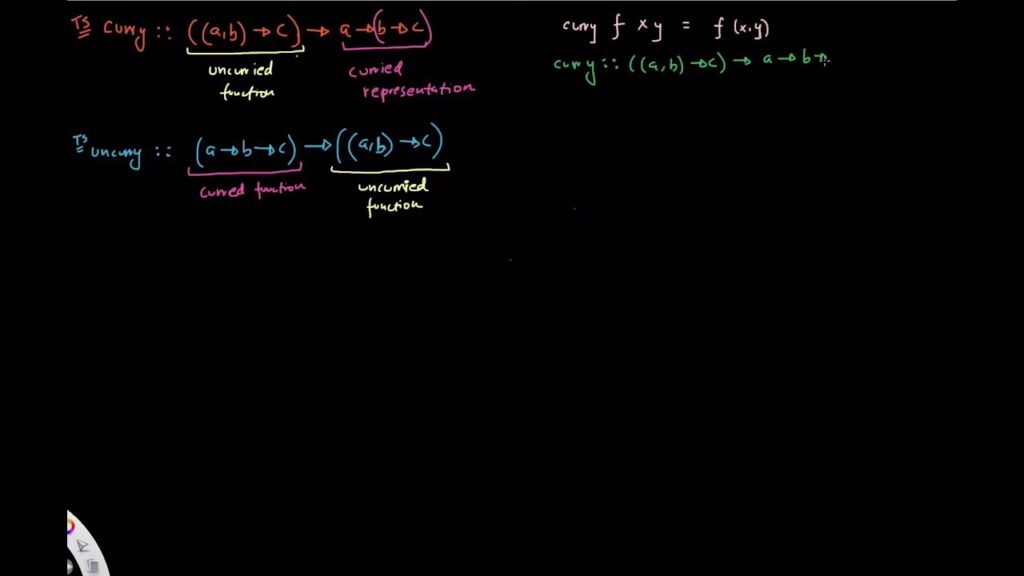 TS curry :: ((a,b) → c) → a → (b → c)
uncurried
function
curried
representation
TS uncurry :: (a → b → c) → ((a,b) → c)
curried function
uncurried
function
curry f x y = f (x,y)
curry :: ((a,b) → c) → a → b →